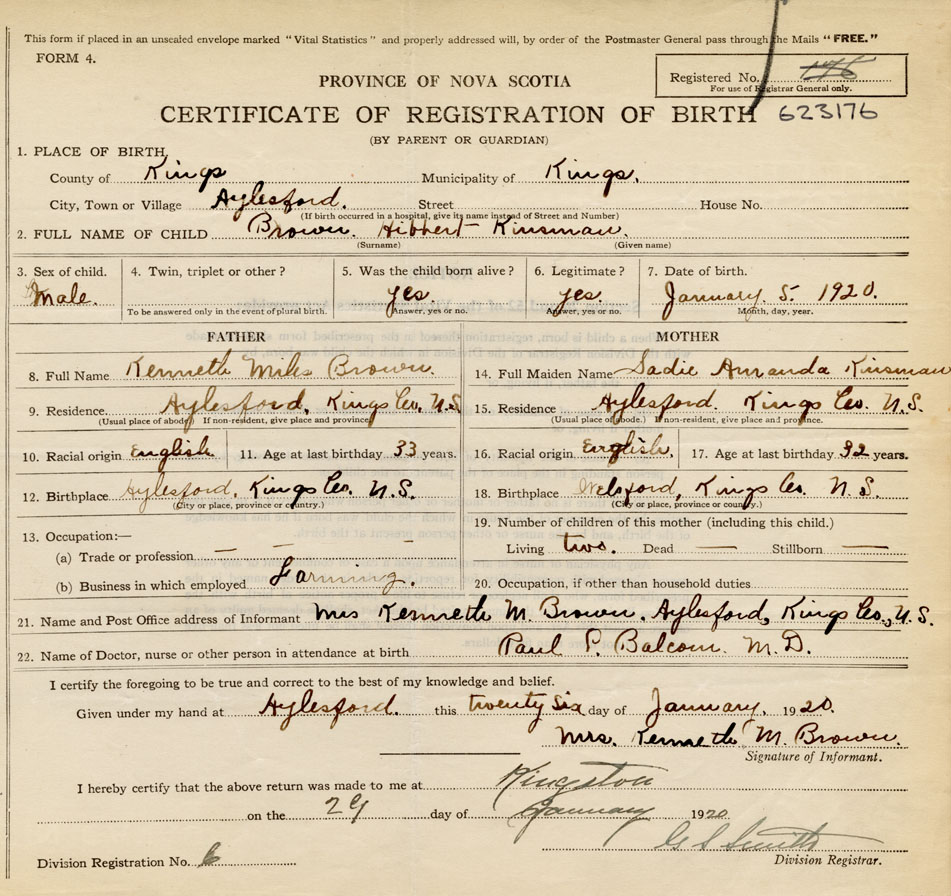 This form if placed in an unsealed envelope marked "Vital Statistics" and properly addressed will, by order of the Postmaster General pass through the Mails "FREE."
FORM 4.
Registered No. 176
For use of Registrar General only.
PROVINCE OF NOVA SCOTIA
CERTIFICATE OF REGISTRATION OF BIRTH 623176
(BY PARENT OR GUARDIAN)
1. PLACE OF BIRTH,
County of Kings Municipality of Kings.
City, Town or Village Aylesford. Street House No.
(If birth occurred in a hospital, give its name instead of Street and Number)
2. FULL NAME OF CHILD Brown. Hibbert Kinsman.
(Surname) (Given name)
3. Sex of child. 4. Twin, triplet or other? 5. Was the child born alive? 6. Legitimate? 7. Date of birth.
Male. yes. yes. January. 5. 1920.
To be answered only in the event of plural birth. Answer, yes or no. Answer, yes or no. Month, day, year.
FATHER MOTHER
8. Full Name Kenneth Miles Brown. 14. Full Maiden Name Sadie Amanda Kinsman
9. Residence Aylesford, Kings Co. N.S. 15. Residence Aylesford. Kings Co. N.S.
(Usual place of abode.) If non-resident, give place and province. (Usual place of abode.) If non-resident, give place and province.
10. Racial origin English. 11. Age at last birthday 33 years. 16. Racial origin English. 17. Age at last birthday 32 years.
12. Birthplace Aylesford, Kings Co. N.S. 18. Birthplace Welsford, Kings Co. N.S.
(City or place, province or country.) (City or place, province or country.)
13. Occupation:— 19. Number of children of this mother (including this child.)
(a) Trade or profession — — - Living two. Dead — Stillborn —
(b) Business in which employed Farming. 20. Occupation, if other than household duties
21. Name and Post Office address of Informant Mrs Kenneth M. Brown. Aylesford, Kings Co., N.S.
22. Name of Doctor, nurse or other person in attendance at birth Paul P. Balcom. M.D.
I certify the foregoing to be true and correct to the best of my knowledge and belief.
Given under my hand at Aylesford. this twenty six day of January, 1920.
Mrs. Kenneth M. Brown.
Signature of Informant.
I hereby certify that the above return was made to me at Kingston
on the 29 day of January 1920
G S Smith
Division Registration No. 6 Division Registrar.